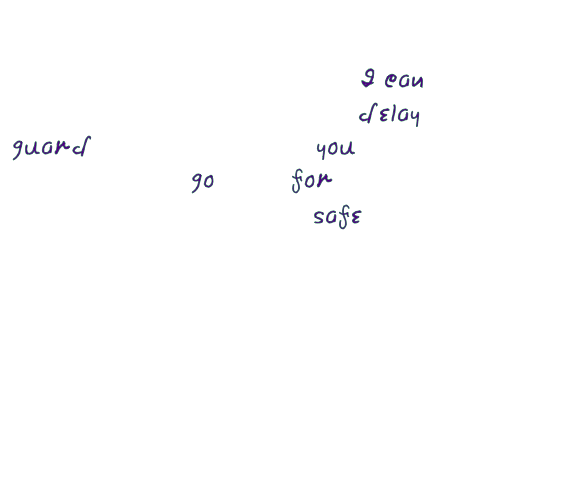 I can
delay
guard you
go for
safe